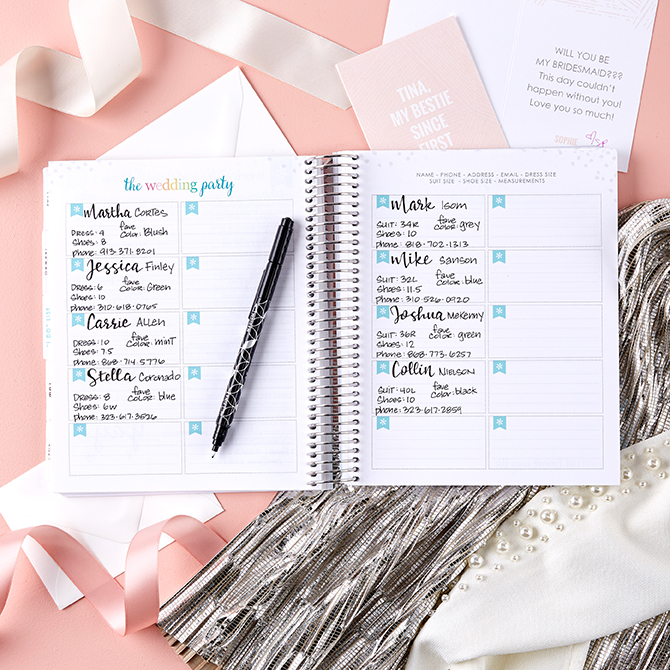 WILL YOU BE
MY BRIDESMAID???
This day couldn't
happen without you!
Love you so much!
SOPHIE
TINA,
MY BESTIE
SINCE
FIRST
the wedding party
Martha Cortes
Dress: 4 fave color: Blush
Shoes: 8
phone: 913·371·8201
Jessica Finley
Dress: 6 fave color: Green
Shoes: 10
phone: 310·618·0765
Carrie Allen
Dress: 10 fave color: mint
Shoes: 7.5
phone: 868·714·5776
Stella Coronado
Dress: 8 fave color: blue
Shoes: 6w
phone: 323·617·3526
NAME - PHONE - ADDRESS - EMAIL - DRESS SIZE
SUIT SIZE - SHOE SIZE - MEASUREMENTS
Mark Isom
Suit: 34R fave color: grey
Shoes: 10
phone: 818·702·1313
Mike Sanson
Suit: 32L fave color: blue
Shoes: 11.5
phone: 310·526·0920
Joshua McKemy
Suit: 36R fave color: green
Shoes: 12
phone: 868·773·6257
Collin Nielson
Suit: 40L fave color: black
Shoes: 10
phone: 323·617·2859